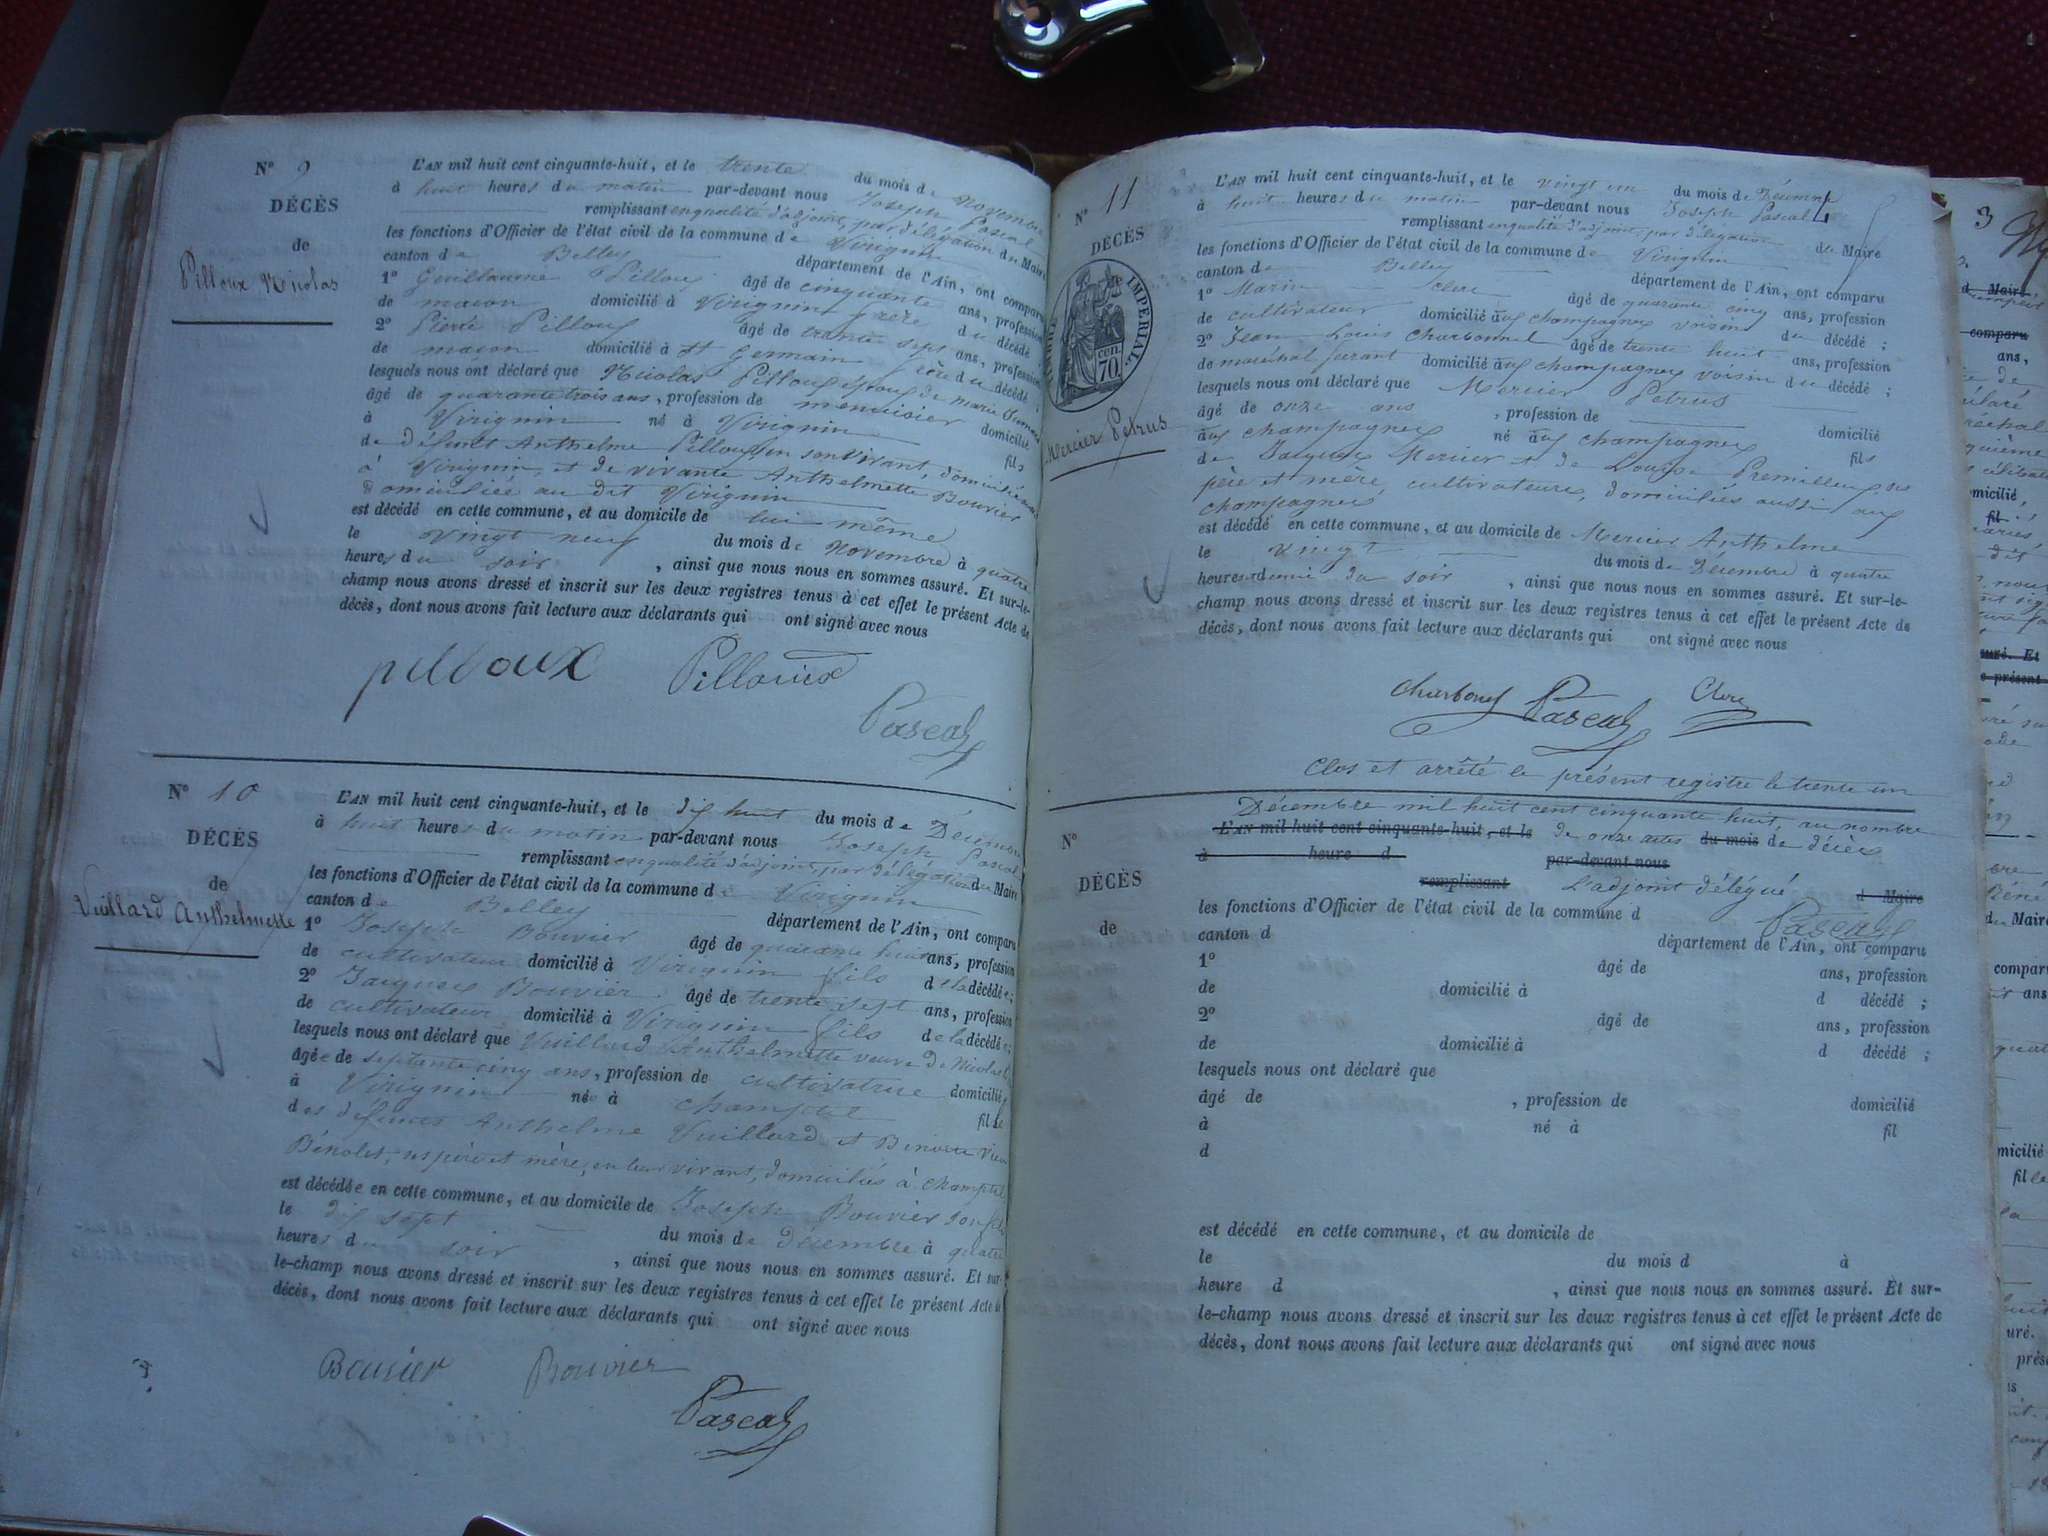 N° 9
DÉCÈS
de
Pilloux Nicolas
L'AN mil huit cent cinquante-huit, et le trente du mois de Novembre
à huit heures du matin par-devant nous Joseph Pascal
remplissant en qualité d'adjoint, par délégation du Maire
les fonctions d'Officier de l'état civil de la commune de Virignin
canton de Belley département de l'Ain, ont comparu
1° Guillaume Pilloux âgé de cinquante ans, profession
de macon domicilié à Virignin frère du décédé
2° Pierre Pilloux âgé de trente sept ans, profession
de macon domicilié à St Germain frère du décédé ;
lesquels nous ont déclaré que Nicolas Pilloux époux de marie
âgé de quarante trois ans, profession de menuisier domicilié
à Virignin né à Virignin fils
de défunt Anthelme Pilloux en son vivant, domicilié
à Virignin, et de vivante Anthelmette Bouvier
domiciliée au dit Virignin
est décédé en cette commune, et au domicile de lui même
le vingt neuf du mois de Novembre à quatre
heures du soir , ainsi que nous nous en sommes assuré. Et sur-le-
champ nous avons dressé et inscrit sur les deux registres tenus à cet effet le présent Acte de
décès, dont nous avons fait lecture aux déclarants qui ont signé avec nous
pilloux Pilloux
Pascal
N° 10
DÉCÈS
de
Vuillard Anthelmette
L'AN mil huit cent cinquante-huit, et le dix huit du mois de Décembre
à huit heures du matin par-devant nous Joseph Pascal
remplissant en qualité d'adjoint, par délégation du Maire
les fonctions d'Officier de l'état civil de la commune de Virignin
canton de Belley département de l'Ain, ont comparu
1° Joseph Bouvier âgé de quarante huit ans, profession
de cultivateur domicilié à Virignin fils de la décédée ;
2° Jacques Bouvier âgé de trente sept ans, profession
de cultivateur domicilié à Virignin fils de la décédée ;
lesquels nous ont déclaré que Vuillard Anthelmette veuve de Nicolas
âgée de septante cinq ans, profession de cultivatrice domiciliée
à Virignin née à Champtel fille
des défunts Anthelme Vuillard et Benoite
Bénolet, ses père et mère, en leur vivant, domiciliés à Champtel
est décédée en cette commune, et au domicile de Joseph Bouvier son fils
le dix sept du mois de décembre à quatre
heures du soir , ainsi que nous nous en sommes assuré. Et sur-
le-champ nous avons dressé et inscrit sur les deux registres tenus à cet effet le présent Acte de
décès, dont nous avons fait lecture aux déclarants qui ont signé avec nous
Bouvier Bouvier
Pascal
N° 11
DÉCÈS
TIMBRE IMPÉRIAL
70 cen.
Mercier Petrus
L'AN mil huit cent cinquante-huit, et le vingt un du mois de Décembre
à huit heures du matin par-devant nous Joseph Pascal
remplissant en qualité d'adjoint, par délégation du Maire
les fonctions d'Officier de l'état civil de la commune de Virignin
canton de Belley département de l'Ain, ont comparu
1° Marin Clerc âgé de quarante cinq ans, profession
de cultivateur domicilié aux champagnes voisin du décédé ;
2° Jean Louis Charbonnel âgé de trente huit ans, profession
de maréchal ferant domicilié aux champagnes voisin du décédé ;
lesquels nous ont déclaré que Mercier Petrus
âgé de onze ans , profession de domicilié
aux champagnes né aux champagnes fils
de Jacques Mercier et de Louise Premilleux, ses
père et mère, cultivateurs, domiciliés aussi aux
champagnes
est décédé en cette commune, et au domicile de Mercier Anthelme
le vingt du mois de Décembre à quatre
heures et demie du soir , ainsi que nous nous en sommes assuré. Et sur-le-
champ nous avons dressé et inscrit sur les deux registres tenus à cet effet le présent Acte de
décès, dont nous avons fait lecture aux déclarants qui ont signé avec nous
Charbonel Pascal Clerc
Clos et arrêté le présent registre le trente un
Décembre mil huit cent cinquante huit, au nombre
N°
DÉCÈS
de
L'AN mil huit cent cinquante-huit, et le de onze actes du mois de décès
à heure d par-devant nous
remplissant L'adjoint délégué d Maire
Pascal
les fonctions d'Officier de l'état civil de la commune d
canton d département de l'Ain, ont comparu
1° âgé de ans, profession
de domicilié à d décédé ;
2° âgé de ans, profession
de domicilié à d décédé ;
lesquels nous ont déclaré que
âgé de , profession de domicilié
à né à fil
d
est décédé en cette commune, et au domicile de
le du mois d à
heure d , ainsi que nous nous en sommes assuré. Et sur-
le-champ nous avons dressé et inscrit sur les deux registres tenus à cet effet le présent Acte de
décès, dont nous avons fait lecture aux déclarants qui ont signé avec nous